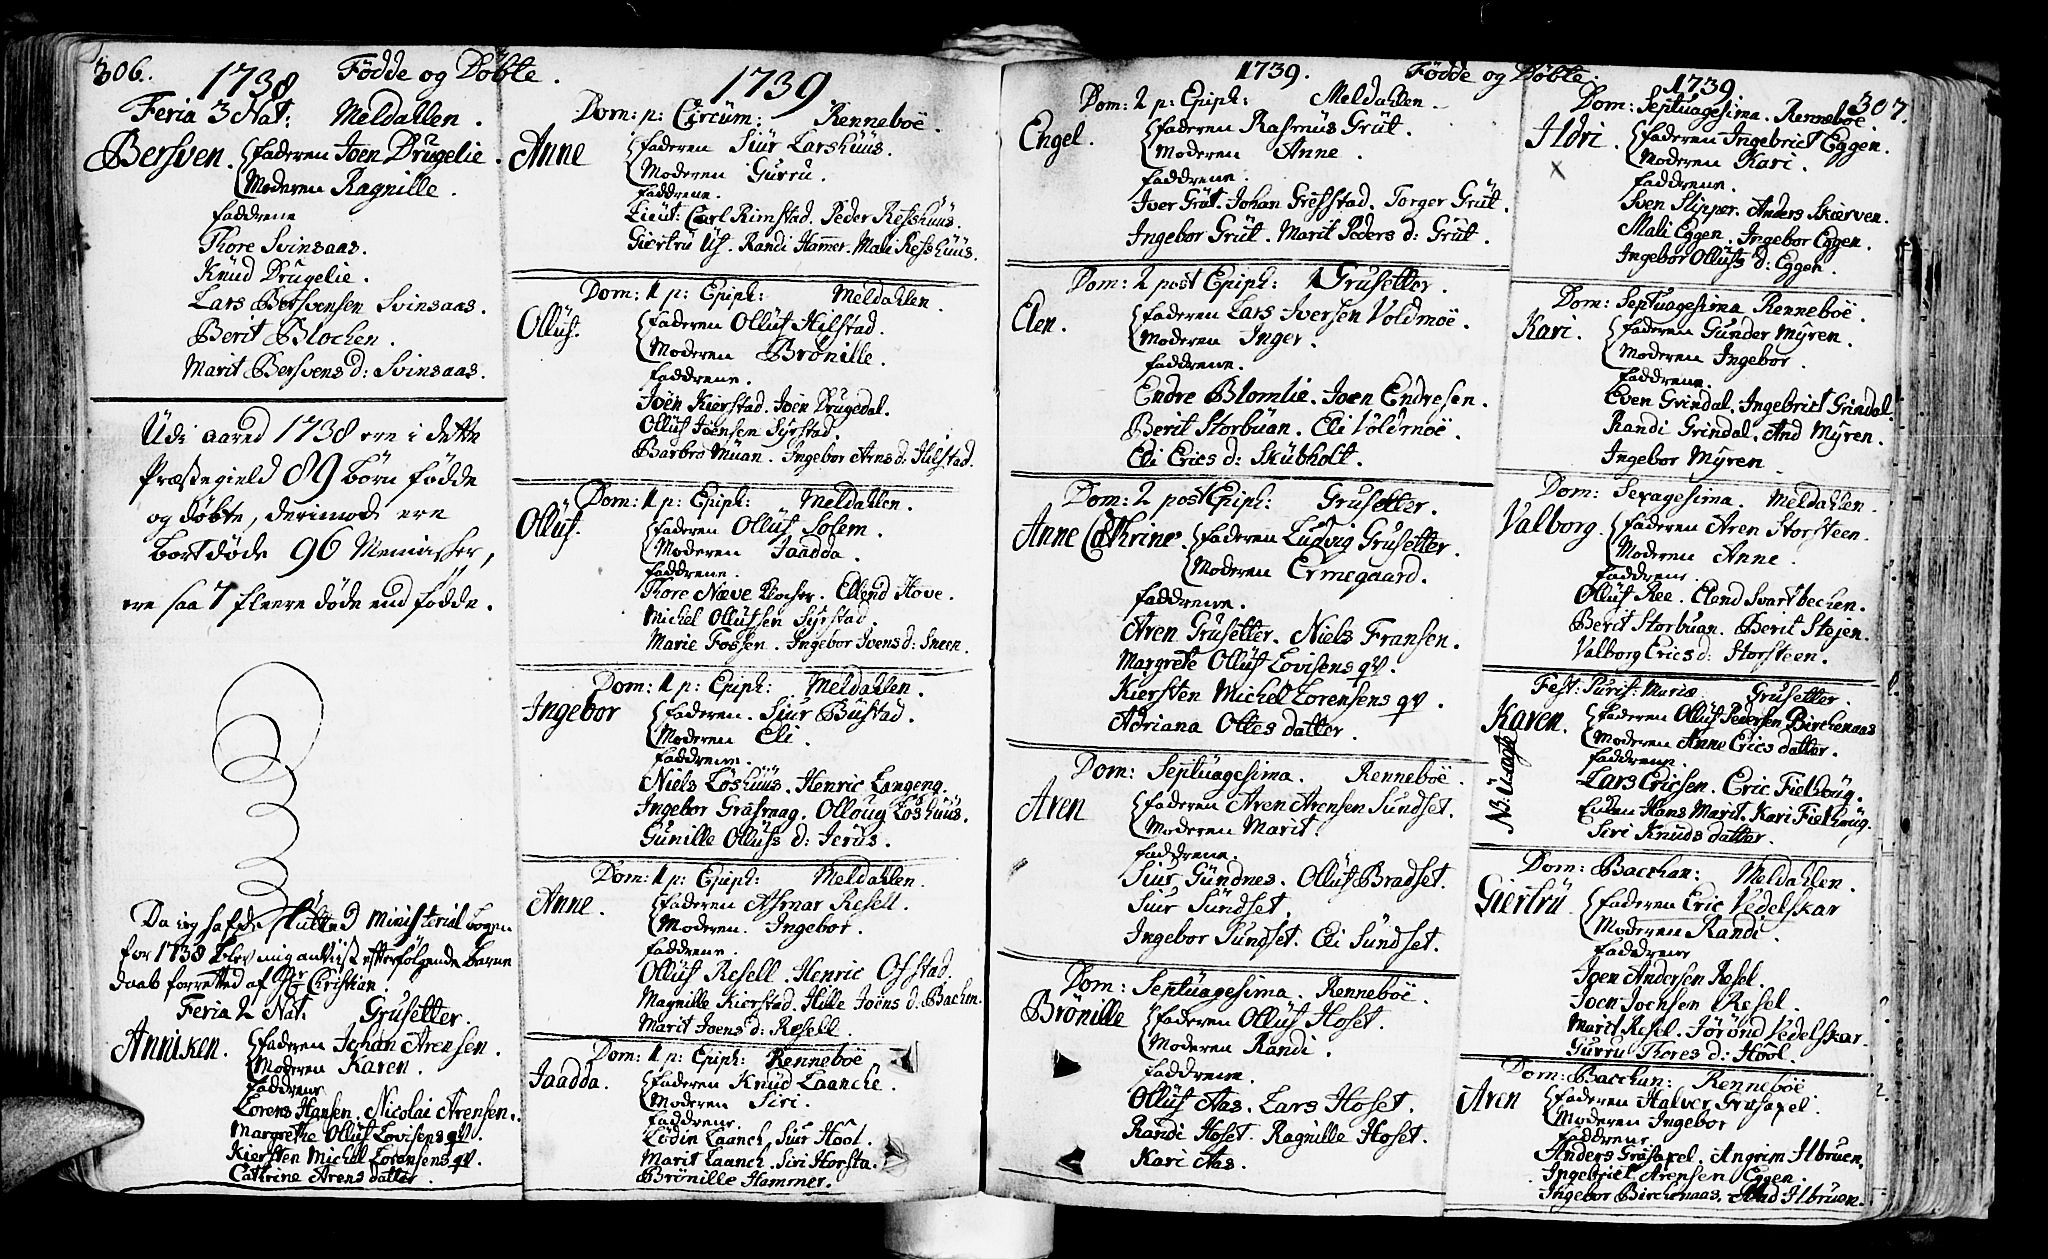 306.
1738 Födde og Döbte.
Feria 3 Nat: Meldahlen.
Bersven. faderen Joen Drugelie.
Moderen Ragnille.
faddrene
Thore Svinsaas.
Knud Drugelie.
Lars Bersvensen Svinsaas.
Berit Blochen.
Marit Bersvens d: Svinsaas.
Udi aared 1738 ere i dette
Præstegield 89 börn födde
og döbte, derimod ere
bortdöde 96 Mennischer,
ere saa 7 fleere döde end födde.
Da ieg hafde slutted Ministerial bogen
for 1738 blev mig anviist efterfölgende barne
daab forretted af Hr Christian.
Feria 2 Nat. Grusetter.
Anniken. faderen Johan Arensen.
Moderen Karen.
faddrene
Lorens Hansen. Nicolai Arensen.
Margrethe Olluf Lovisens qv.
Kiersten Michel Lorensens qv.
Cathrine Arens datter.
1739
Dom: p: Circum: Renneboe.
Anne faderen Siur Larshuus.
Moderen Gurru.
faddrene.
Lieut: Carl Rimstad. Peder Refshuus.
Giertru Uf. Randi Hammer. Mali Refshuus.
Dom: 1 p: Epiph: Meldahlen.
Olluf. faderen Olluf Hilstad.
Moderen Brönille.
faddrene.
Joen Kierstad. Joen Drugedal.
Olluf Joensen Syrstad.
Barbro Muan. Ingebor Arns d: Hilstad.
Dom: 1 p: Epiph: Meldahlen.
Olluf. faderen Olluf Solem.
Moderen Jaadda.
faddrene.
Thore Næve Klocher. Ellend Hove.
Michel Ollufsen Syrstad.
Marie Fossen. Ingebor Joens d: Sneen.
Dom: 1 p: Epiph: Meldahlen.
Ingebor faderen. Siur Bustad.
Moderen Eli.
faddrene.
Niels Löshuus. Henric Langeng.
Ingebor Græsmag. Olloug Löshuus.
Gunille Ollufs d: Jerus.
Dom: 1 p: Epiph: Meldahlen.
Anne. faderen Asmar Resell.
Moderen. Ingebor.
faddrene.
Olluf Resell. Henric Ofstad.
Magnille Kierstad. Hille Joens d: Bachen.
Marit Joens d: Resell.
Dom: 1 p: Epiph: Renneboe
Jaadda. faderen Knud Laanche.
Moderen Siri.
faddrene.
Lodin Laanch. Siur Hool.
Marit Laanch. Siri Horsta.
Brönille Hammer.
1739. Födde og Döbte.
Dom: 2 p: Epiph: Meldahlen.
Engel. faderen Rasmus Grut.
Moderen Anne.
faddrene.
Iver Grut. Johan Grefstad. Torger Grut.
Ingebor Grut. Marit Peders d: Grut.
Dom: 2 post Epiph: Grusetter.
Elen. faderen Lars Iversen Voldmoe.
Moderen Inger.
faddrene.
Endre Blomlie. Joen Endresen.
Berit Storbuan. Eli Voldmoe.
Eli Erics d: Skubholt.
Dom: 2 post Epiph: Grusetter.
Anne Cathrine. faderen Ludvig Grusetter.
Moderen Ermegaard.
faddrene.
Aren Grusetter. Niels Fransen.
Margrete Olluf Lovisens qv.
Kiersten Michel Lorensens qv.
Adriana Ottes datter.
Dom: Septuagesima. Renneboe.
Aren faderen Aren Arensen Sundset.
Moderen Marit
faddrene.
Siur Gundnes. Olluf Bradset.
Siur Sundset.
Ingebor Sundset. Eli Sundset.
Dom: Septuagesima. Renneboe.
Brönille faderen Olluf Hoset.
Moderen Randi.
faddrene.
Olluf Aas. Lars Hoset.
Randi Hoset. Ragnille Hoset.
Kari Aas.
1739. 307.
Dom: Septuagesima. Renneboe.
Ildri. faderen Ingebrict Eggen.
Moderen Kari.
faddrene.
Sven Slipper. Anders Skierven.
Mali Eggen. Ingebor Eggen.
Ingebor Ollufs d: Eggen.
Dom: Septuagesima Renneboe.
Kari. faderen Gunder Myren.
Moderen Ingebor.
faddrene.
Even Grindal. Ingebrict Grindal.
Randi Grindal. And Myren.
Ingebor Myren.
Dom: Sexagesima. Meldahlen.
Valborg. faderen Aren Storsteen.
Moderen Anne.
faddrene.
Olluf Ree. Elend Svartbechen.
Berit Storbuan. Berit Stejen.
Valborg Erics d: Storsteen.
Fest: Purif: Mariæ Grusetter.
Karen. faderen Olluf Pedersen Birchenaas
Moderen Anne Erics datter.
faddrene.
Lars Ericsen. Eric Fielhoug.
Enken Hans Marit. Kari Fielhoug.
Siri Knuds datter.
NB. Uægte
Dom: Bacchan: Meldahlen.
Giertru faderen Eric Vedelskar
Moderen Randi.
faddrene
Joen Andersen Resel.
Joen Joensen Resel.
Marit Resel. Jörönd Vedelskar.
Gurru Thores d: Hool.
Dom: Bacchan: Renneboe
Aren faderen Halver Græsaxel.
Moderen Ingebor
faddrene
Anders Græsaxel. Angrim Ilbruen.
Ingebrict Arensen Eggen.
Ingebor Birchenaas. And Ilbruen.